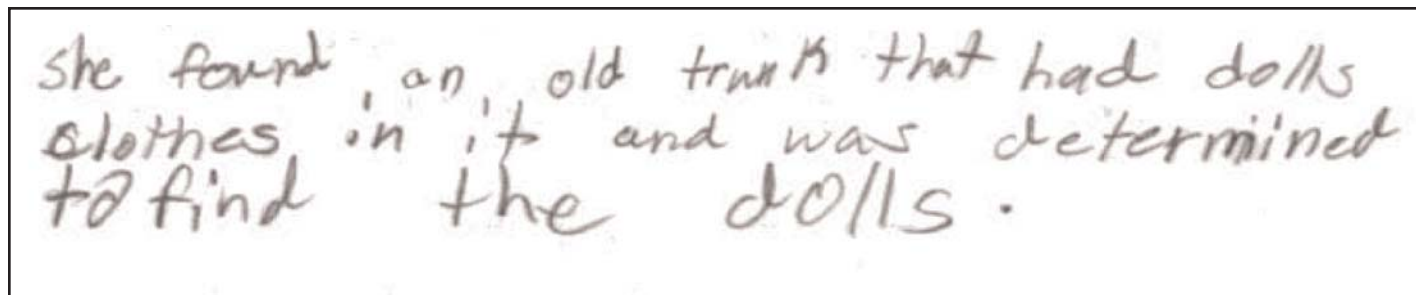 She found an old trunk that had dolls
clothes in it and was determined
to find the dolls.